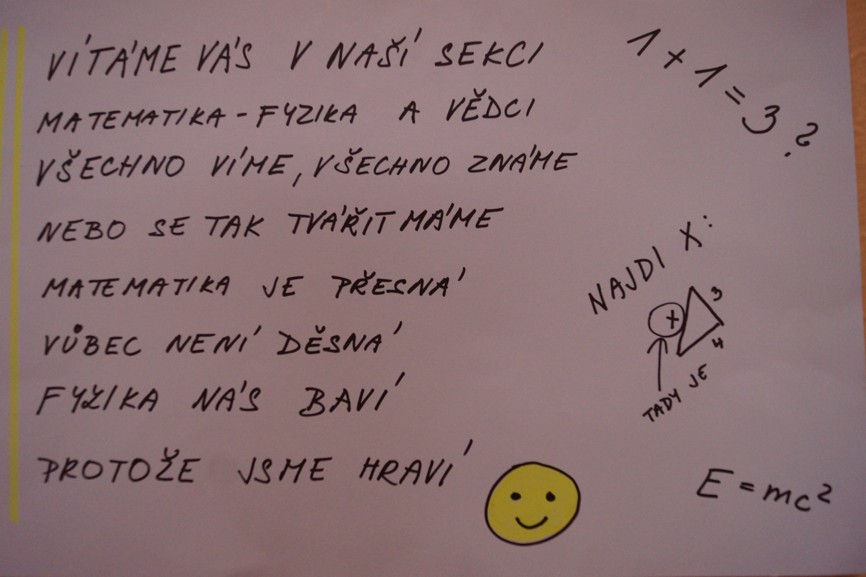 VÍTÁME VÁS V NAŠÍ SEKCI
MATEMATIKA - FYZIKA A VĚDCI
VŠECHNO VÍME, VŠECHNO ZNÁME
NEBO SE TAK TVÁŘIT MÁME
MATEMATIKA JE PŘESNÁ
VŮBEC NENÍ DĚSNÁ
FYZIKA NÁS BAVÍ
PROTOŽE JSME HRAVÍ
1 + 1 = 3 ?
NAJDI X:
3
x
4
TADY JE
E = mc²